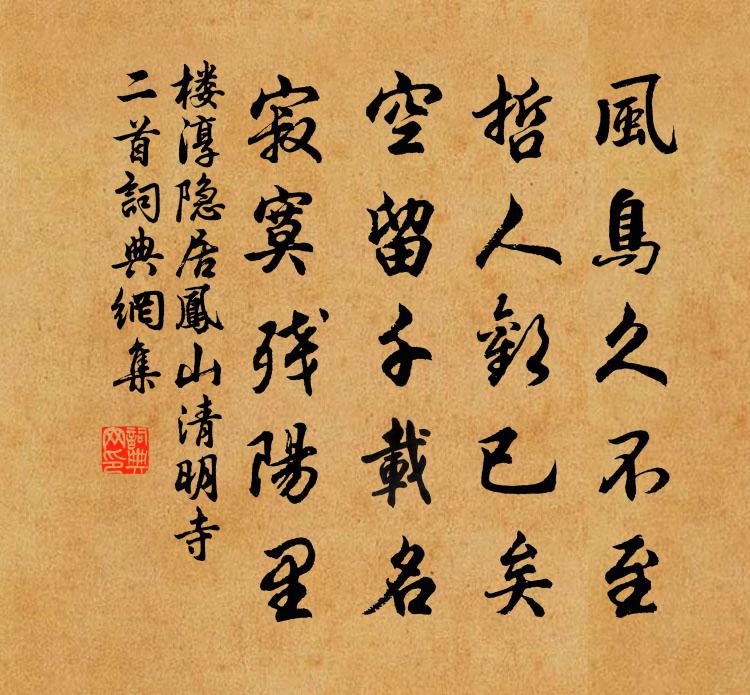 風鳥久不至
哲人歎已矣
空留千載名
寂寞残陽里
楼淳隐居鳳山清明寺
二首詞典網集
詞典網印